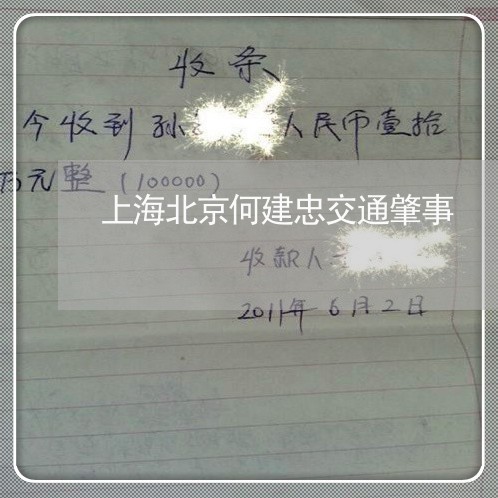 收条
今收到孙 人民币壹拾
万元整(100000)
上海北京何建忠交通肇事
收款人
2011年6月2日